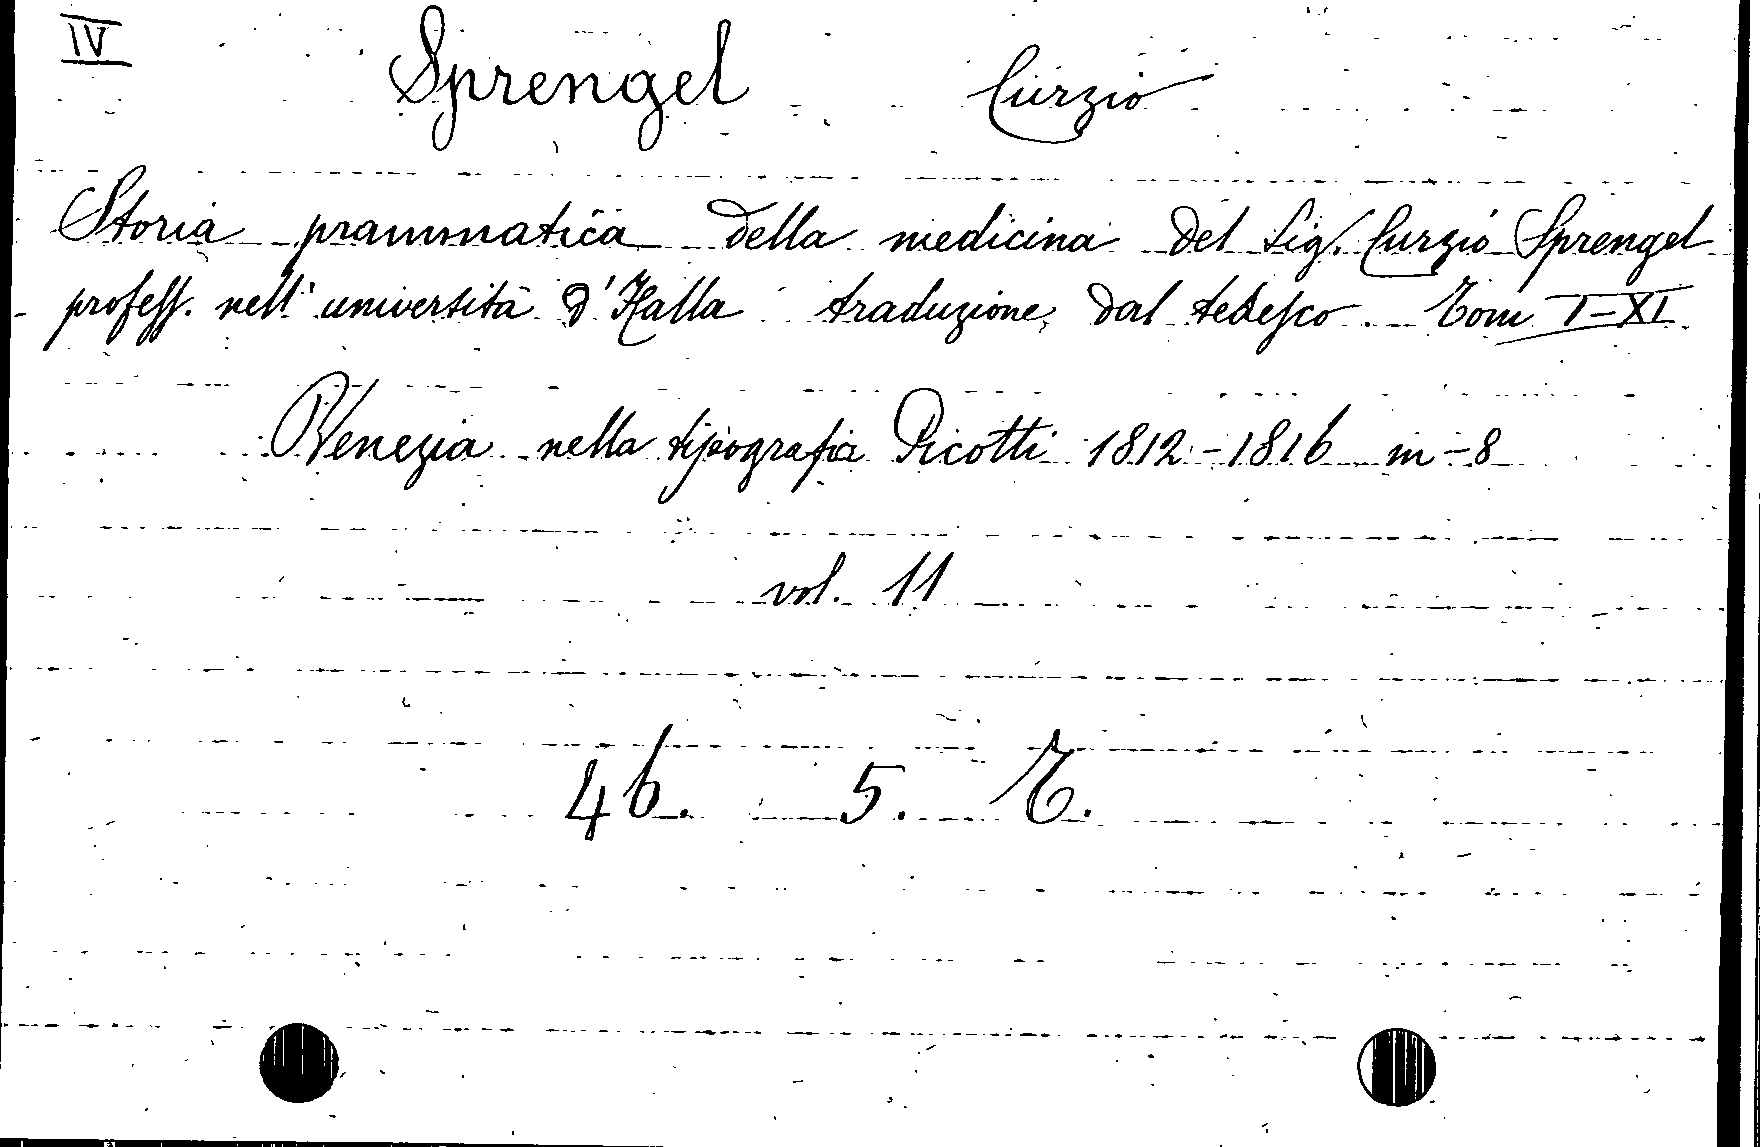 IV
Sprengel Curzio
Storia prammatica della medicina del Sig. Curzio Sprengel
profess. nell' università d'Halla traduzione dal tedesco. Tom I-XI
Venezia nella tipografia Picotti 1812-1816 in-8
vol. 11
46. 5. T.